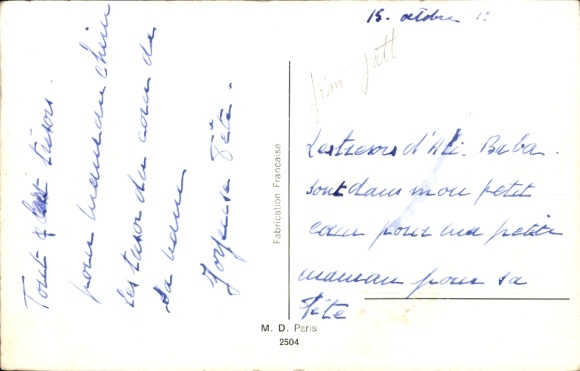 15. octobre
Tout est trésors.
pour maman chérie
les trésor du cœur de
sa
Joyeuse Fête.
Fabrication Française
M. D. Paris
2504
Les tresors d'Ali. Baba.
sont dans mon petit
cœur pour ma petite
maman pour sa
Fête